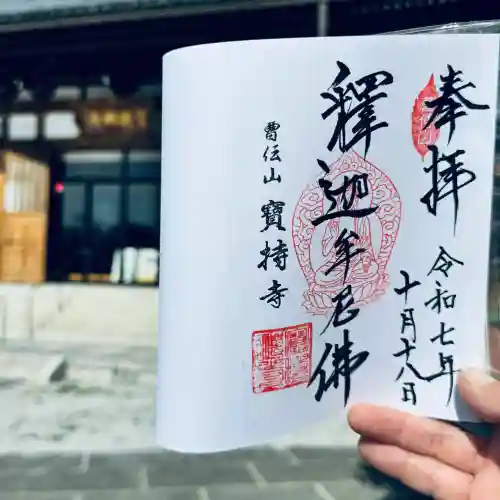 奉拝
令和七年
十月十八日
釋迦牟尼佛
曹伝山
寳持寺